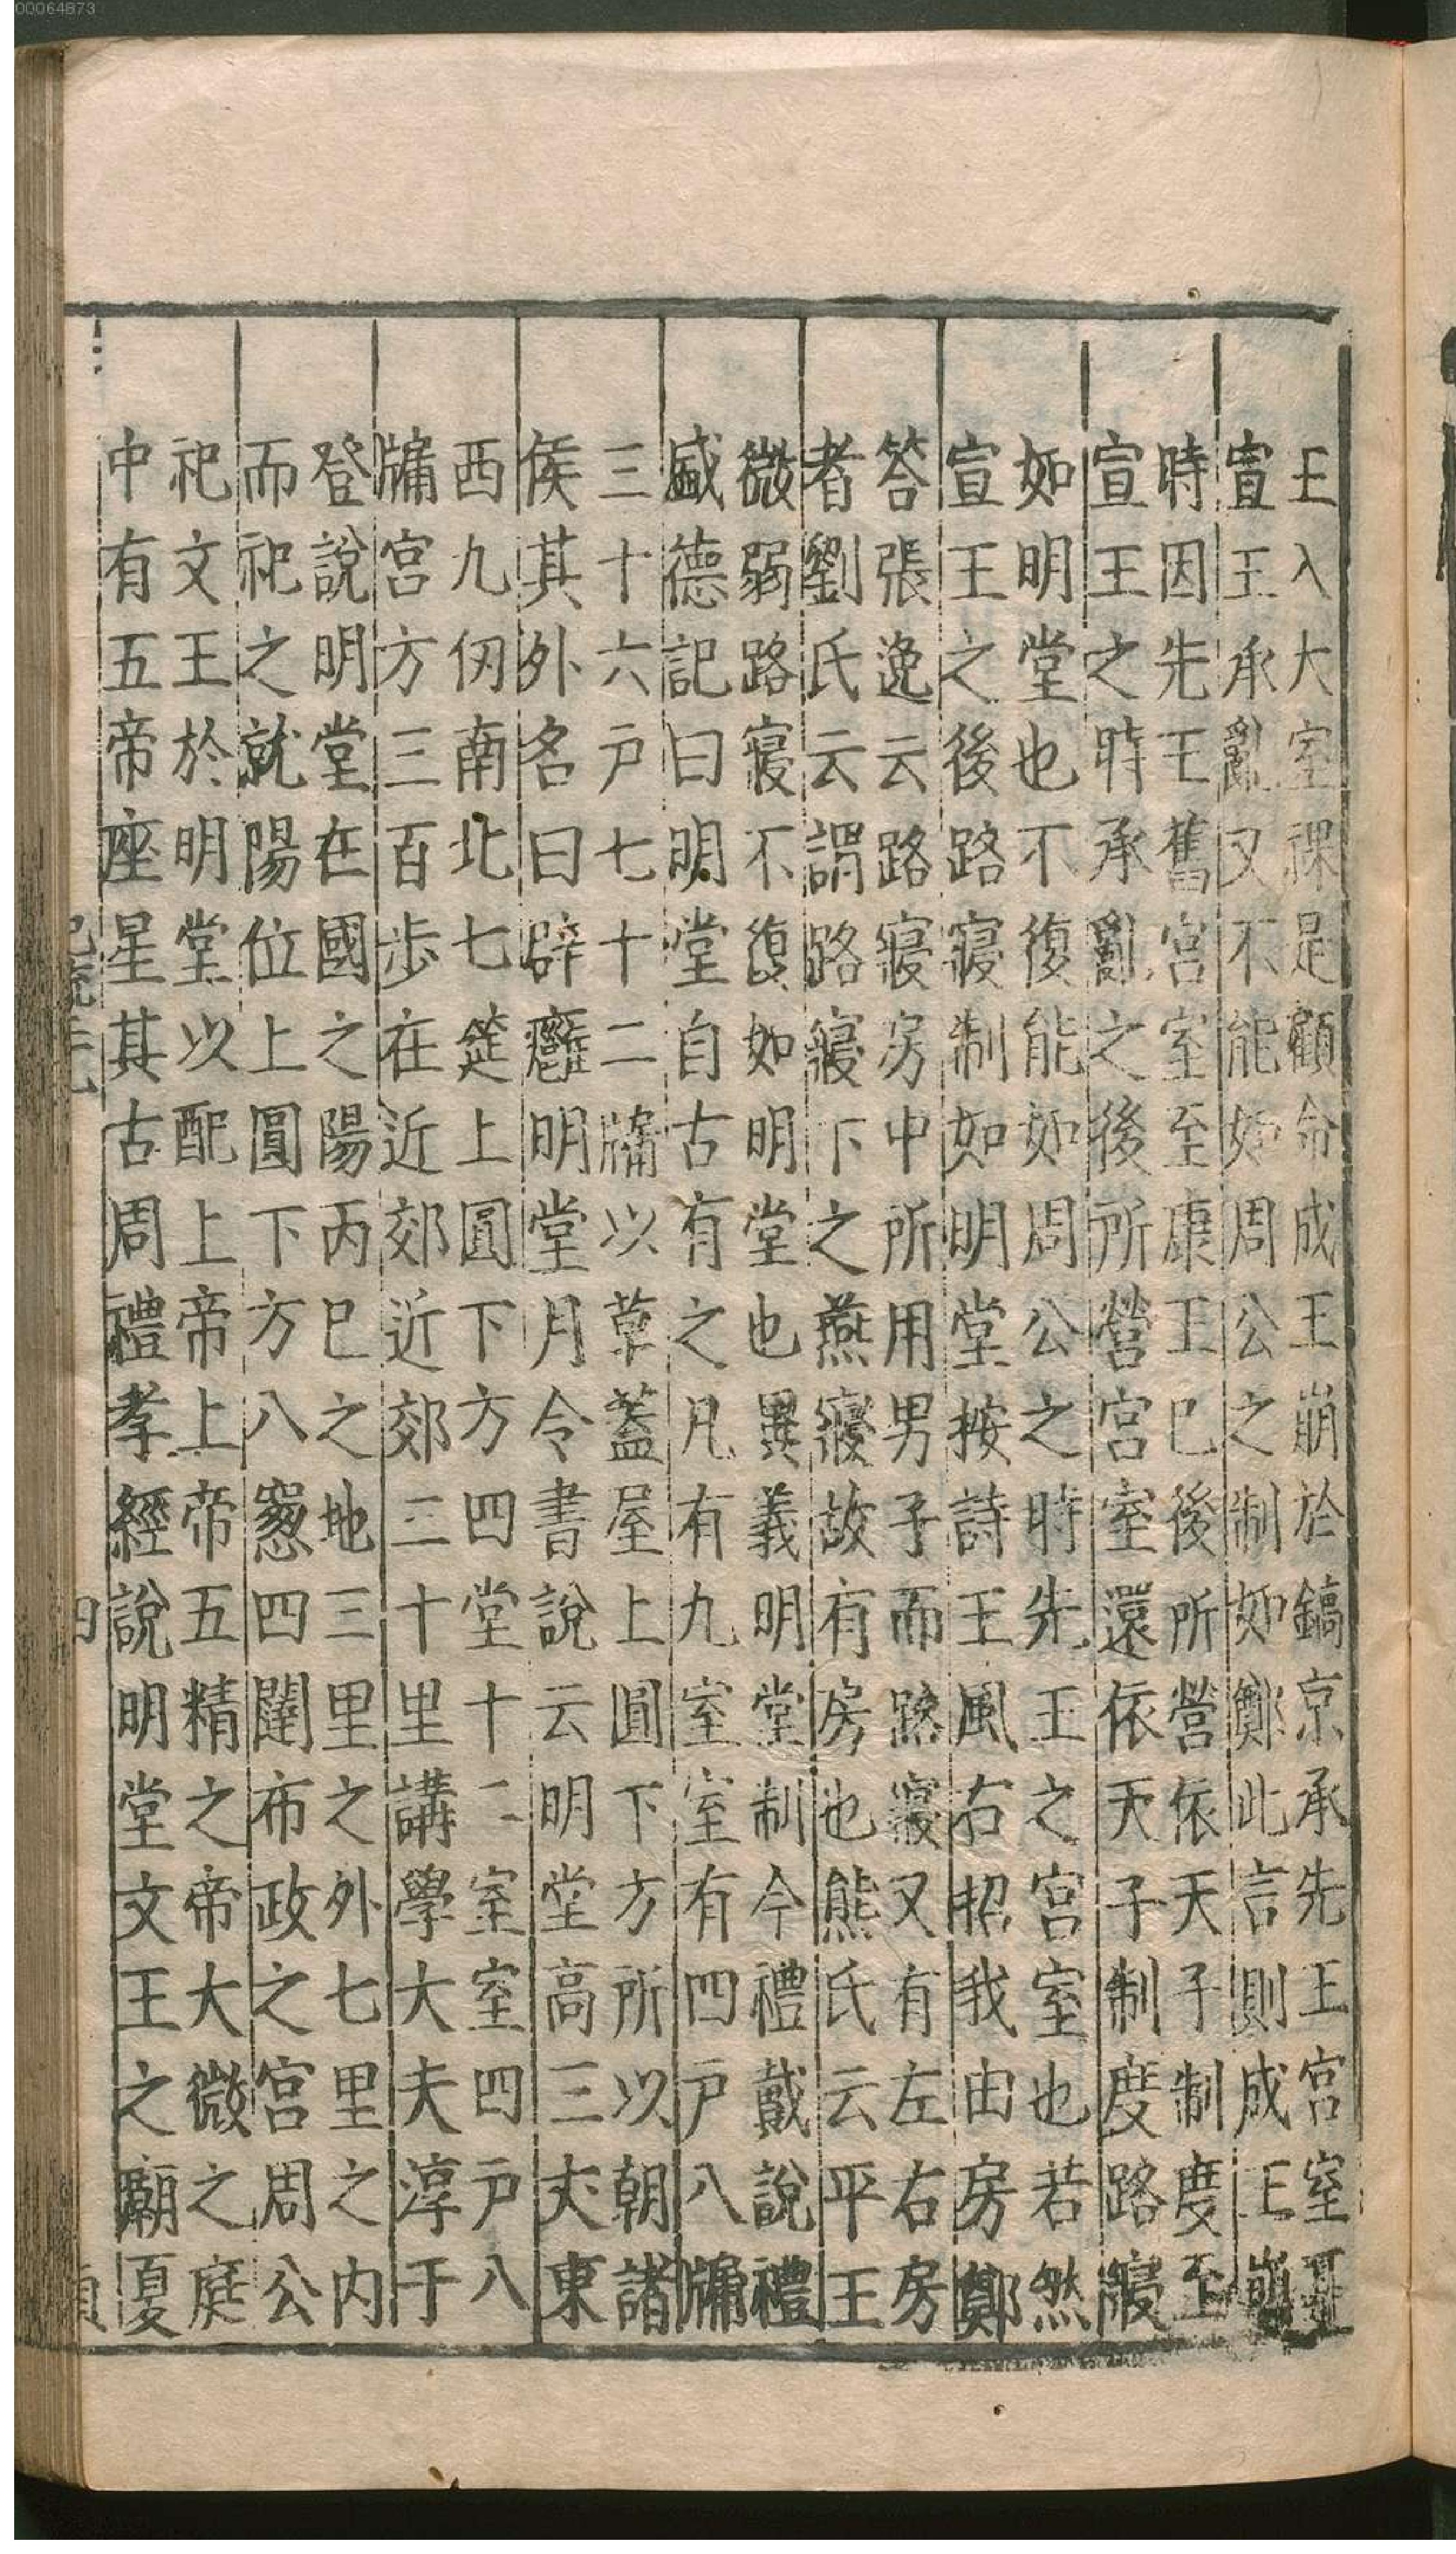 00064873
王入大室祼是顧命成王崩於鎬京承先王宮室耳
宣王承亂又不能如周公之制如鄭此言則成王崩
時因先王舊宮室至康王已後所營依天子制度至
宣王之時承亂之後所營宮室還依天子制度路寢
如明堂也不復能如周公之時先王之宮室也若然
宣王之後路寢制如明堂按詩王風右招我由房鄭
荅張逸云路寢房中所用男子而路寢又有左右房
者劉氏云謂路寢下之燕寢故有房也熊氏云平王
微弱路寢不復如明堂也異義明堂制今禮戴說禮
盛德記曰明堂自古有之凡有九室室有四戶八牖
三十六戶七十二牖以草蓋屋上圓下方所以朝諸
侯其外名曰辟廱明堂月令書說云明堂高三丈東
西九仞南北七筵上圓下方四堂十二室室四戶八
牖宮方三百步在近郊近郊三十里講學大夫淳于
登說明堂在國之陽丙巳之地三里之外七里之內
而祀之就陽位上圓下方八窻四闥布政之宮周公
祀文王於明堂以配上帝上帝五精之帝大微之庭
中有五帝座星其古周禮孝經說明堂文王之廟夏